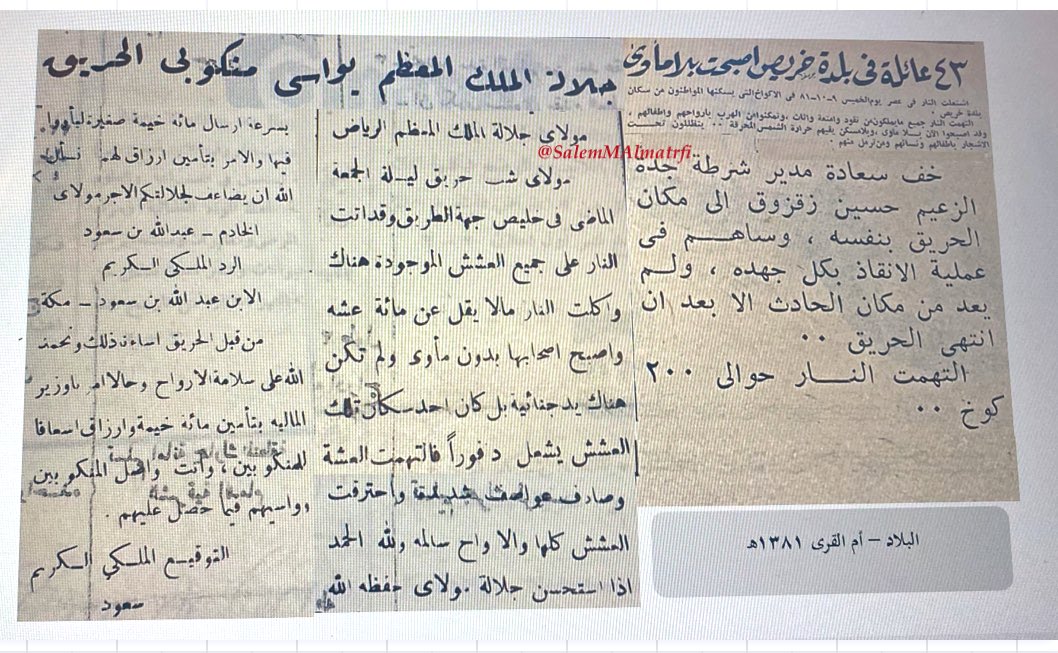 ٤٣ عائلة فى بلدة خريص اصبحت بلا مأوى
اشتعلت النار فى عصر يوم الخميس ٩-١٠-٨١ فى الاكواخ التى يسكنها المواطنون من سكان
بلدة خريص ·
التهمت النار جميع مايملكون من نقود وامتعة واثاث ، وتمكنوا من الهرب بارواحهم واطفالهم ،
وقد اصبحوا الآن بلا مأوى ، وبلامسكن يقيهم حرارة الشمس المحرقة ·· يتظللون تحت
الاشجار باطفالهم ونسائهم ومن لرمل منهم ·
خف سعادة مدير شرطة جده
الزعيم حسين زقزوق الى مكان
الحريق بنفسه ، وساهم فى
عملية الانقاذ بكل جهده ، ولم
يعد من مكان الحادث الا بعد ان
انتهى الحريق ··
التهمت النار حوالى ٢٠٠
كوخ ··
جلالة الملك المعظم يواسى منكوبى الحريق
مولاى جلالة الملك المعظم الرياض
@SalemMAlmatrfi
مولاى شب حريق ليلة الجمعة
الماضى فى خليص جهة الطريق وقد اتت
النار على جميع العشش الموجودة هناك
واكلت النار مالا يقل عن مائة عشه
واصبح اصحابها بدون مأوى ولم تكن
هناك يد جنائية بل كان احد سكان تلك
العشش يشعل دفوراً فالتهمت العشة
وصادف عواصف شديدة واحترقت
العشش كلها والارواح سالمه ولله الحمد
اذا استحسن جلالة مولاى حفظه الله
بسرعة ارسال مائه خيمة صغيرة ليأووا
فيها والامر بتأمين ارزاق لهم نسأل
الله ان يضاعف لجلالتكم الاجر مولاى
الخادم – عبدالله بن سعود
الرد الملكى الكريم
الابن عبد الله بن سعود – مكة
من قبل الحريق اساءنا ذلك ونحمد
الله على سلامة الارواح وحالا امرنا وزير
الماليه بتأمين مائة خيمة وارزاق اسعافا
للمنكوبين ، وانت واصل المنكوبين
وواسيهم فيما حصل عليهم .
التوقيع الملكى الكريم
سعود
البلاد – أم القرى ١٣٨١هـ